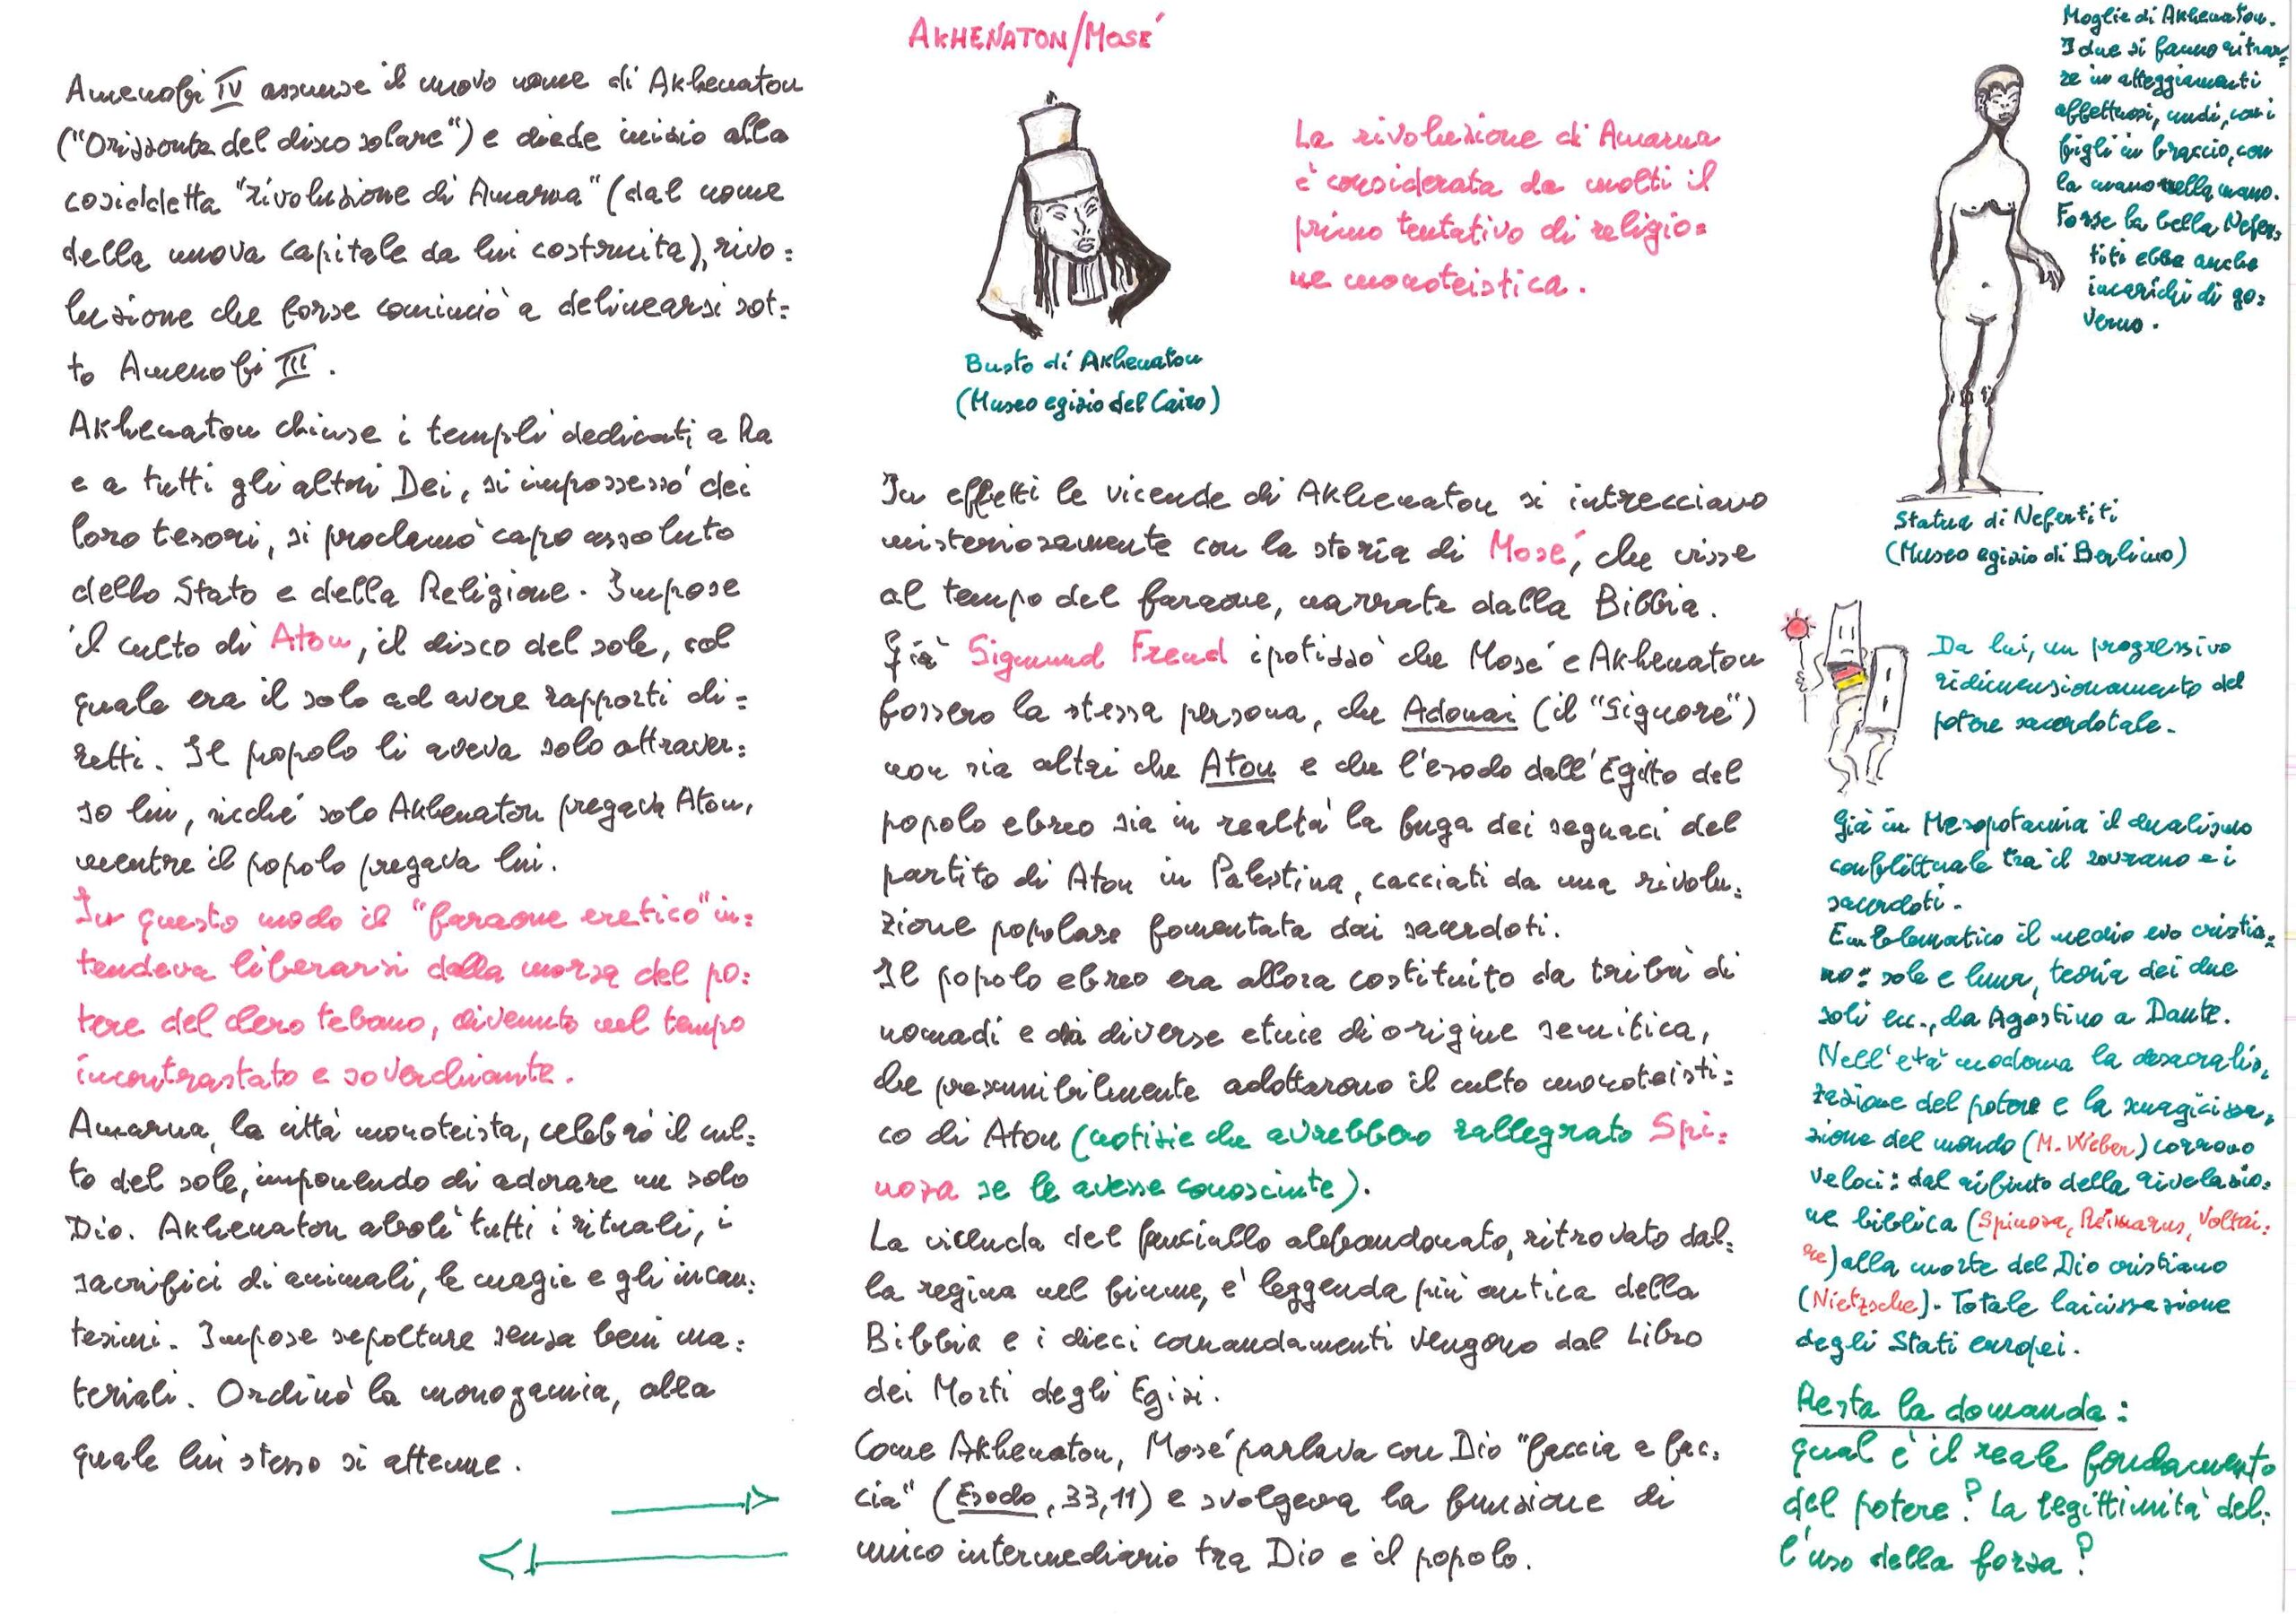 AKHENATON/MOSÉ
Amenofi IV assunse il nuovo nome di Akhenaton
("Orizzonte del disco solare") e diede inizio alla
cosiddetta "rivoluzione di Amarna" (dal nome
della nuova capitale da lui costruita), rivo=
luzione che forse cominciò a delinearsi sot=
to Amenofi III.
Akhenaton chiuse i templi dedicati a Ra
e a tutti gli altri Dei, si impossessò dei
loro tesori, si proclamò capo assoluto
dello Stato e della Religione. Impose
il culto di Aton, il disco del sole, col
quale era il solo ad avere rapporti di=
retti. Il popolo li aveva solo attraver=
so lui, sicché solo Akhenaton pregava Aton,
mentre il popolo pregava lui.
In questo modo il "faraone eretico" in=
tendeva liberarsi dalla morsa del po=
tere del clero tebano, divenuto nel tempo
incontrastato e soverchiante.
Amarna, la città monoteista, celebrò il cul=
to del sole, imponendo di adorare un solo
Dio. Akhenaton abolì tutti i rituali, i
sacrifici di animali, le magie e gli incan=
tesimi. Impose sepolture senza beni ma=
teriali. Ordinò la monogamia, alla
quale lui stesso si attenne.
Busto di Akhenaton
(Museo egizio del Cairo)
La rivoluzione di Amarna
è considerata da molti il
primo tentativo di religio=
ne monoteistica.
In effetti le vicende di Akhenaton si intrecciano
misteriosamente con la storia di Mosé, che visse
al tempo del faraone, narrate dalla Bibbia.
Già Sigmund Freud ipotizzò che Mosé e Akhenaton
fossero la stessa persona, che Adonai (il "Signore")
non sia altri che Aton e che l'esodo dall'Egitto del
popolo ebreo sia in realtà la fuga dei seguaci del
partito di Aton in Palestina, cacciati da una rivolu=
zione popolare fomentata dai sacerdoti.
Il popolo ebreo era allora costituito da tribù di
nomadi e di diverse etnie di origine semitica,
che presumibilmente adottarono il culto monoteisti=
co di Aton (notizie che avrebbero rallegrato Spi=
noza se le avesse conosciute).
La vicenda del fanciullo abbandonato, ritrovato dal=
la regina nel fiume, è leggenda più antica della
Bibbia e i dieci comandamenti vengono dal Libro
dei Morti degli Egizi.
Come Akhenaton, Mosé parlava con Dio "faccia a fac=
cia" (Esodo, 33,11) e svolgeva la funzione di
unico intermediario tra Dio e il popolo.
Moglie di Akhenaton.
I due si fanno ritrar=
re in atteggiamenti
affettuosi, nudi, con i
figli in braccio, con
la mano nella mano.
Forse la bella Nefer=
titi ebbe anche
incarichi di go=
verno.
Statua di Nefertiti
(Museo egizio di Berlino)
Da lui, un progressivo
ridimensionamento del
potere sacerdotale.
Già in Mesopotamia il dualismo
conflittuale tra il sovrano e i
sacerdoti.
Emblematico il medio evo cristia=
no: sole e luna, teoria dei due
soli ecc., da Agostino a Dante.
Nell'età moderna la desacraliz=
zazione del potere e la smagicizza=
zione del mondo (M. Weber) corrono
veloci: dal rifiuto della rivelazio=
ne biblica (Spinoza, Reimarus, Voltai=
re) alla morte del Dio cristiano
(Nietzsche). Totale laicizzazione
degli Stati europei.
Resta la domanda:
qual è il reale fondamento
del potere? La legittimità del=
l'uso della forza?